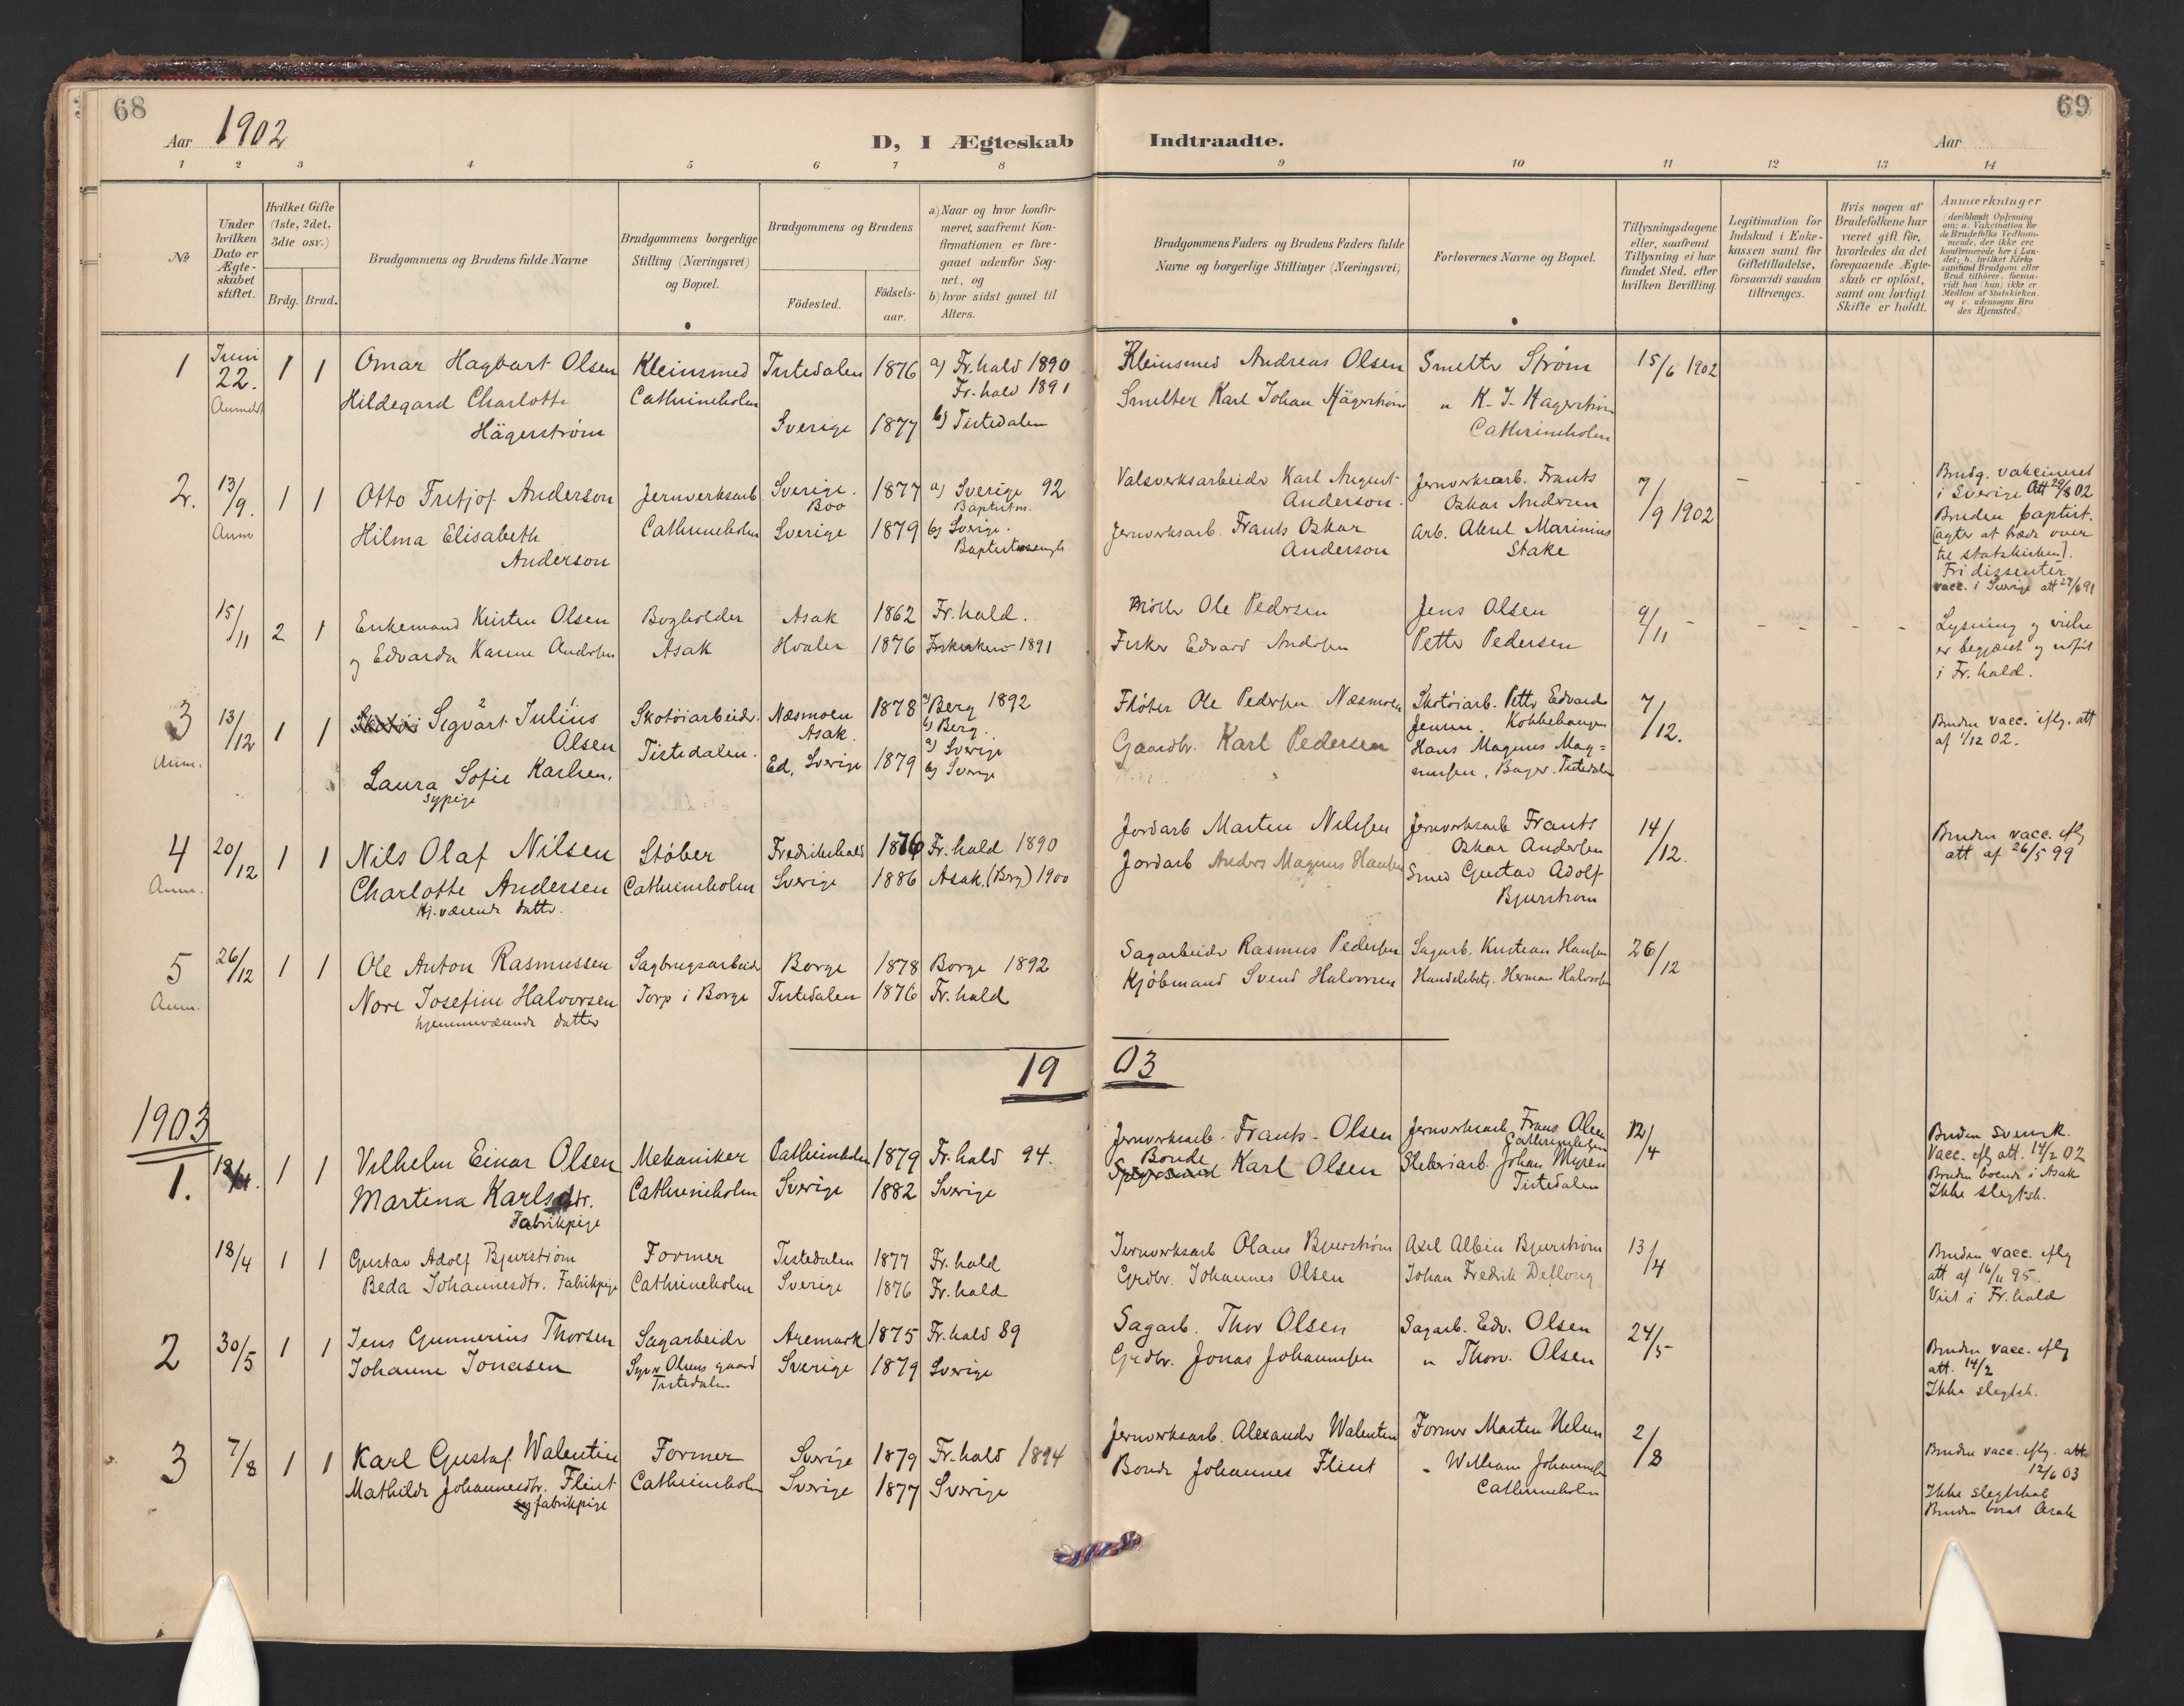 68
Aar 1902
D, I Ægteskab
1 2 3 4 5 6 7 8
№
Under hvilken Dato er Ægteskabet stiftet.
Hvilket Gifte (1ste, 2det, 3die osv.)
Brdg. Brud.
Brudgommens og Brudens fulde Navne
Brudgommens borgerlige Stilling (Næringsvei) og Bopæl.
Brudgommens og Brudens
Födested.
Födsels-aar.
a) Naar og hvor konfir-
meret, saafremt Kon-
firmationen er fore-
gaaet udenfor Sog-
net, og
b) hvor sidst gaaet til
Alters.
1 Juni 22. Anmeldt 1 1
Omar Hagbart Olsen Kleinsmed Tistedalen 1876 a) Fr.hald 1890
Hildegard Charlotte Cathrineholm Fr.hald 1891
Hägerström Sverige 1877 b) Tistedalen
2. 13/9. Anm 1 1
Otto Fritjof Anderson Jernverksarb. Sverige. Boo 1877 a) Sverige 92 Baptistm.
Hilma Elisabeth Cathrineholm Sverige 1879 b) Sverige.
Anderson
15/11 2 1
Enkemand Kristen Olsen Bogholder Asak 1862 Fr.hald.
og Edvarda Karine Andersen Asak Hvaler 1876 1891
3 13/12 Anm. 1 1
Sigvart Julius Skotöiarbeider. Næsmoen 1878 a) Berg 1892
Olsen Tistedalen. Asak. b) Berg.
Laura Sofie Karlsen. Ed, Sverige 1879 a) Sverige
sypige b) Sverige
4 20/12 Anm. 1 1
Nils Olaf Nilsen Stöber Fredrikshald 1876 Fr.hald 1890
Charlotte Andersen Cathrineholm Sverige 1886 Asak. (Berg) 1900
Hj.værende datter.
5 26/12 Anm. 1 1
Ole Anton Rasmussen Sagbrugsarbeider Borge 1878 Borge 1892
Nore Josefine Halvorsen Torp i Borge Tistedalen 1876 Fr.hald
hjemmeværende datter
19
1903
1. 1 1
Vilhelm Einar Olsen Mekaniker Cathrineholm 1879 Fr.hald 94.
Martina Karlsdtr. Cathrineholm Sverige 1882 Sverige
Fabrikpige
18/4 1 1
Gustav Adolf Bjurström Former Tistedalen 1877 Fr.hald
Beda Johannesdtr. Fabrikpige Cathrineholm Sverige 1876 Fr.hald
2 30/5 1 1
Jens Gunnerius Thorsen Sagarbeider Aremark 1875 Fr.hald 89
Johanne Jonasen Syver Olsens gaard Sverige 1879 Sverige
Tistedalen
3 7/8 1 1
Karl Gustaf Walentin Former Sverige 1879 Fr.hald 1894
Mathilde Johannesdtr. Flint Cathrineholm Sverige 1877 Sverige
fabrikpige
69
Indtraadte.
Aar
9 10 11 12 13 14
Brudgommens Faders og Brudens Faders fulde
Navne og borgerlige Stillinger (Næringsvei)
Forlovernes Navne og Bopæl.
Tillysningsdagene
eller, saafremt
Tillysning ei har
fundet Sted, efter
hvilken Bevilling.
Legitimation for
Indskud i Enke-
kassen samt for
Giftetilladelse,
forsaavidt saadan
tiltrænges.
Hvis nogen af
Brudefolkene har
været gift för,
hvorledes da det
foregaaende Ægte-
skab er oplöst,
samt om lovligt
Skifte er holdt.
Anmærkninger
(deriblandt Oplysning
om: a. Vakcination for
de Brudefolks Vedkom-
mende, der ikke ere
konfirmerede her i Lan-
det; b. hvilket Kirke
samfund Brudgom eller
Brud tilhörer, forsaa-
vidt han (hun) ikke er
Medlem af Statskirken.
og c. udensogns Bru
des Hjemsted.)
Kleinsmed Andreas Olsen Smelter Ström 15/6 1902
Smelter Karl Johan Hägerström " K. J. Hagerström
Cathrineholm
Valsverksarbeider Karl August Jernverksarb. Frants 7/9 1902
Anderson. Oskar Andersen
Jernverksarb. Frants Oskar Arb. Aksel Marinius
Anderson Stake
Brudg. vakcineret
i Sverige Att 29/8 02
Bruden baptist.
[agter at træde over
til statskirken].
Fri dissenter
vacc. i Sverige att 27/6 91
Möller Ole Pedersen Jens Olsen 9/11
Fisker Edvard Andersen Petter Pedersen
Lysning og vielse
er begjæret og udfört
i Fr.hald.
Flöter Ole Pedersen Næsmoen Skotöiarb. Petter Edvard 7/12.
Jensen. Kobbehaugen
Gaardbr. Karl Pedersen Hans Magnus Mag=
nussen, Bager. Tistedalen
Bruden vacc. iflg. att
af 1/12 02.
Jordarb Marten Nilssen Jernverksarb Frants 14/12.
Oskar Andersen
Jordarb Anders Magnus Hansen Smed Gustav Adolf
Bjurstrom
Bruden vacc. iflg
att af 26/5 99
Sagarbeider Rasmus Pedersen Sagarb. Kristian Hansen 26/12
Kjöbmand Svend Halvorsen Handelsbetj. Herman Halvorsen
03
Jernverksarb. Frants Olsen Jernverksarb. Frans Olsen 12/4
Cathrineholm
Bonde Karl Olsen Sliberiarb. Johan Myren
Tistedalen
Bruden svensk.
Vacc. iflg att. 14/2 02
Bruden boende i Asak
Ikke slegtsk.
Jernverksarb Olaus Bjurström Axel Albin Bjurström 13/4
Grdbr. Johannes Olsen Johan Fredrik Dellong
Bruden vacc. iflg
att af 16/11 95.
Viet i Fr.hald
Sagarb. Thor Olsen Sagarb. Edv. Olsen 24/5
Grdbr. Jonas Johannesen " Thorv. Olsen
Bruden vacc. iflg
att. 14/2
Ikke slegtsk.
Jernverksarb. Alexander Walentin Former Marten Nelsen 2/8
Bonde Johannes Flint " William Johannesen
Cathrineholm
Bruden vacc. iflg. att
12/6 03
Ikke slegtskab
Bruden bosat Asak